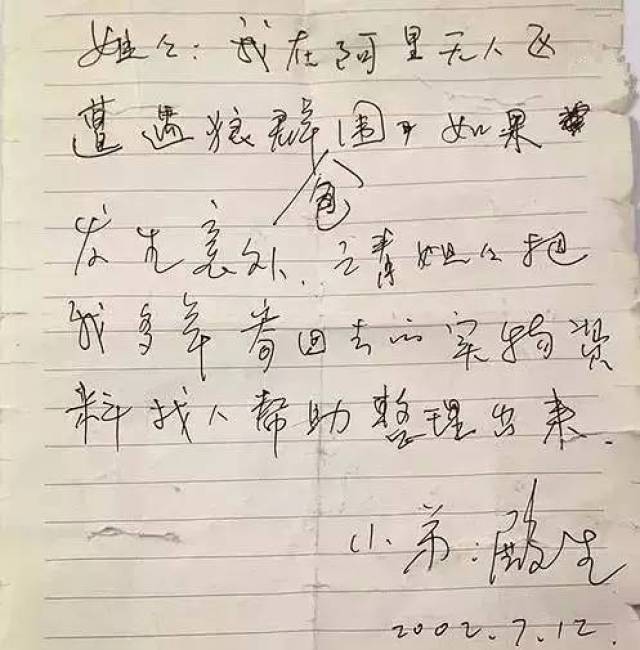 姐姐：我在阿里无人区
遭遇狼群包围，如果
发生意外，请姐姐把
我多年寄回去的实物资
料找人帮助整理出来.
小弟：殿生
2002.7.12.